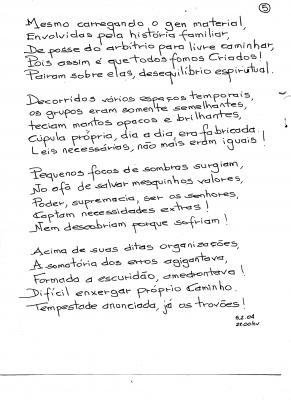 5
Mesmo carregando o gen material,
Envolvidas pela história familiar,
De posse do arbítrio para livre caminhar,
Pois assim é que todos fomos Criados!
Pairam sobre elas, desequilíbrio espirutual.
Decorridos vários espaços temporais,
os grupos eram somente semelhantes,
teciam mantos opacos e brilhantes,
Cúpula própria, dia a dia, era fabricada
Leis necessárias, não mais eram iguais!
Pequenos focos de sombras surgiam,
No afã de salvar mesquinhos valores,
Poder, supremacia, ser os senhores,
Captam necessidades extras!
Nem descobriam porque sofriam!
Acima de suas ditas organizações,
A somatória dos erros agigantava,
Formada a escuridão, amedrontava!
Difícil enxergar próprio Caminho.
Tempestade anunciada, já os trovões!
5.2.04
21:00hv